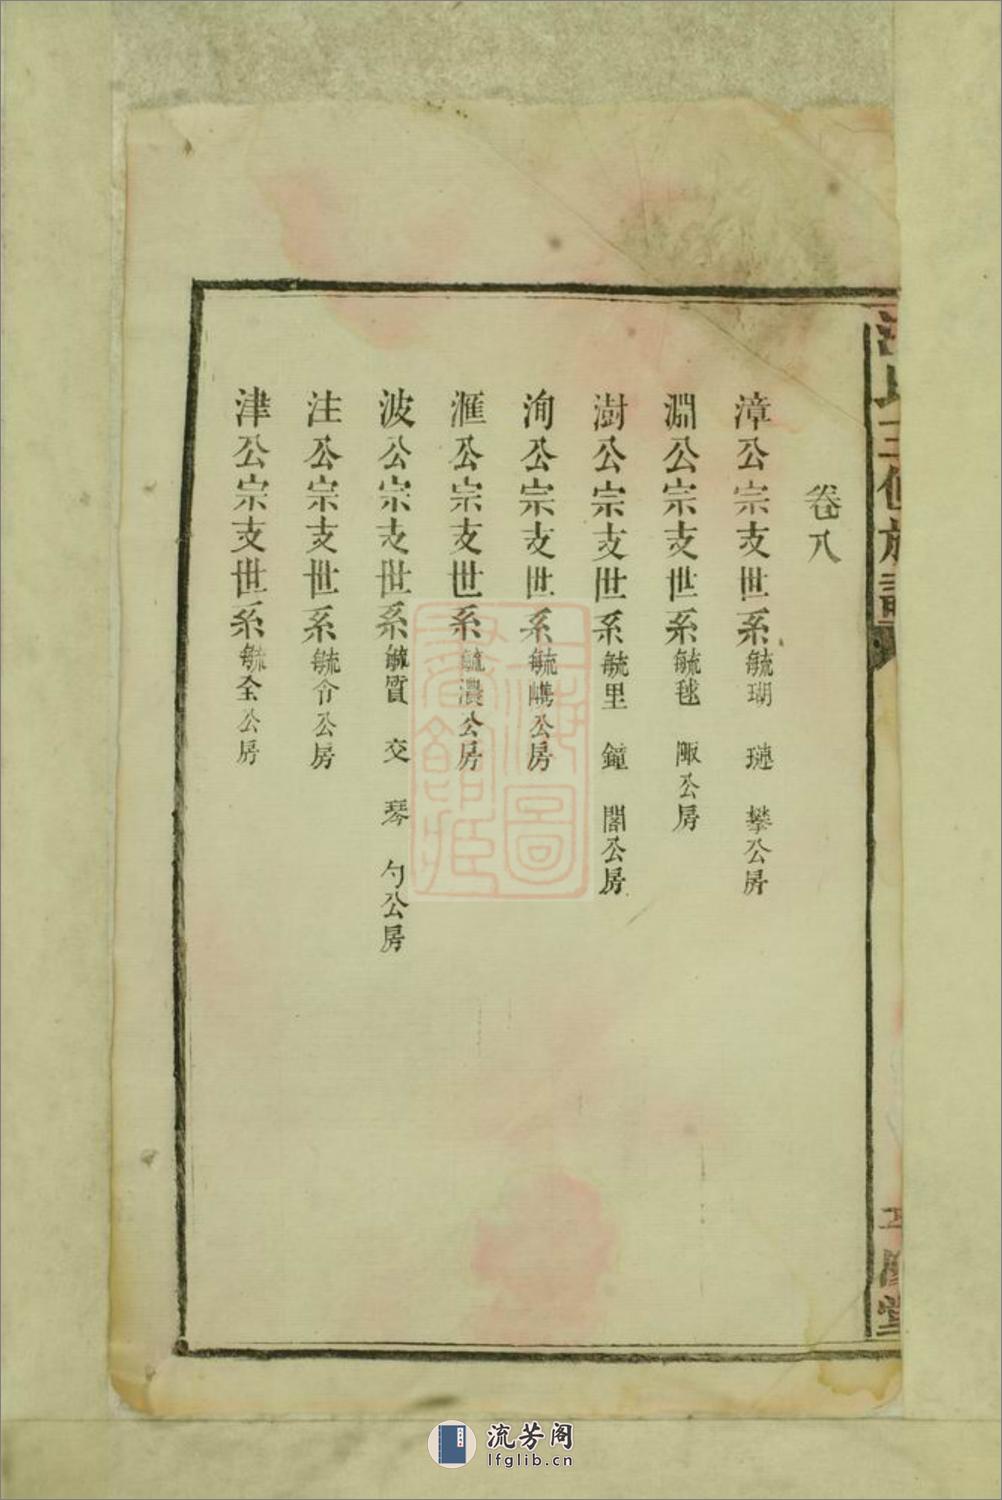 卷八
漳公宗支世系毓瑚 璉 攀公房
淵公宗支世系毓毬 陬公房
澍公宗支世系毓里 鐘 閣公房
洵公宗支世系毓嶲公房
滙公宗支世系毓濃公房
波公宗支世系毓質 交 琴 勺公房
注公宗支世系毓令公房
津公宗支世系毓全公房
上海圖書館藏
流芳阁
lfglib.cn